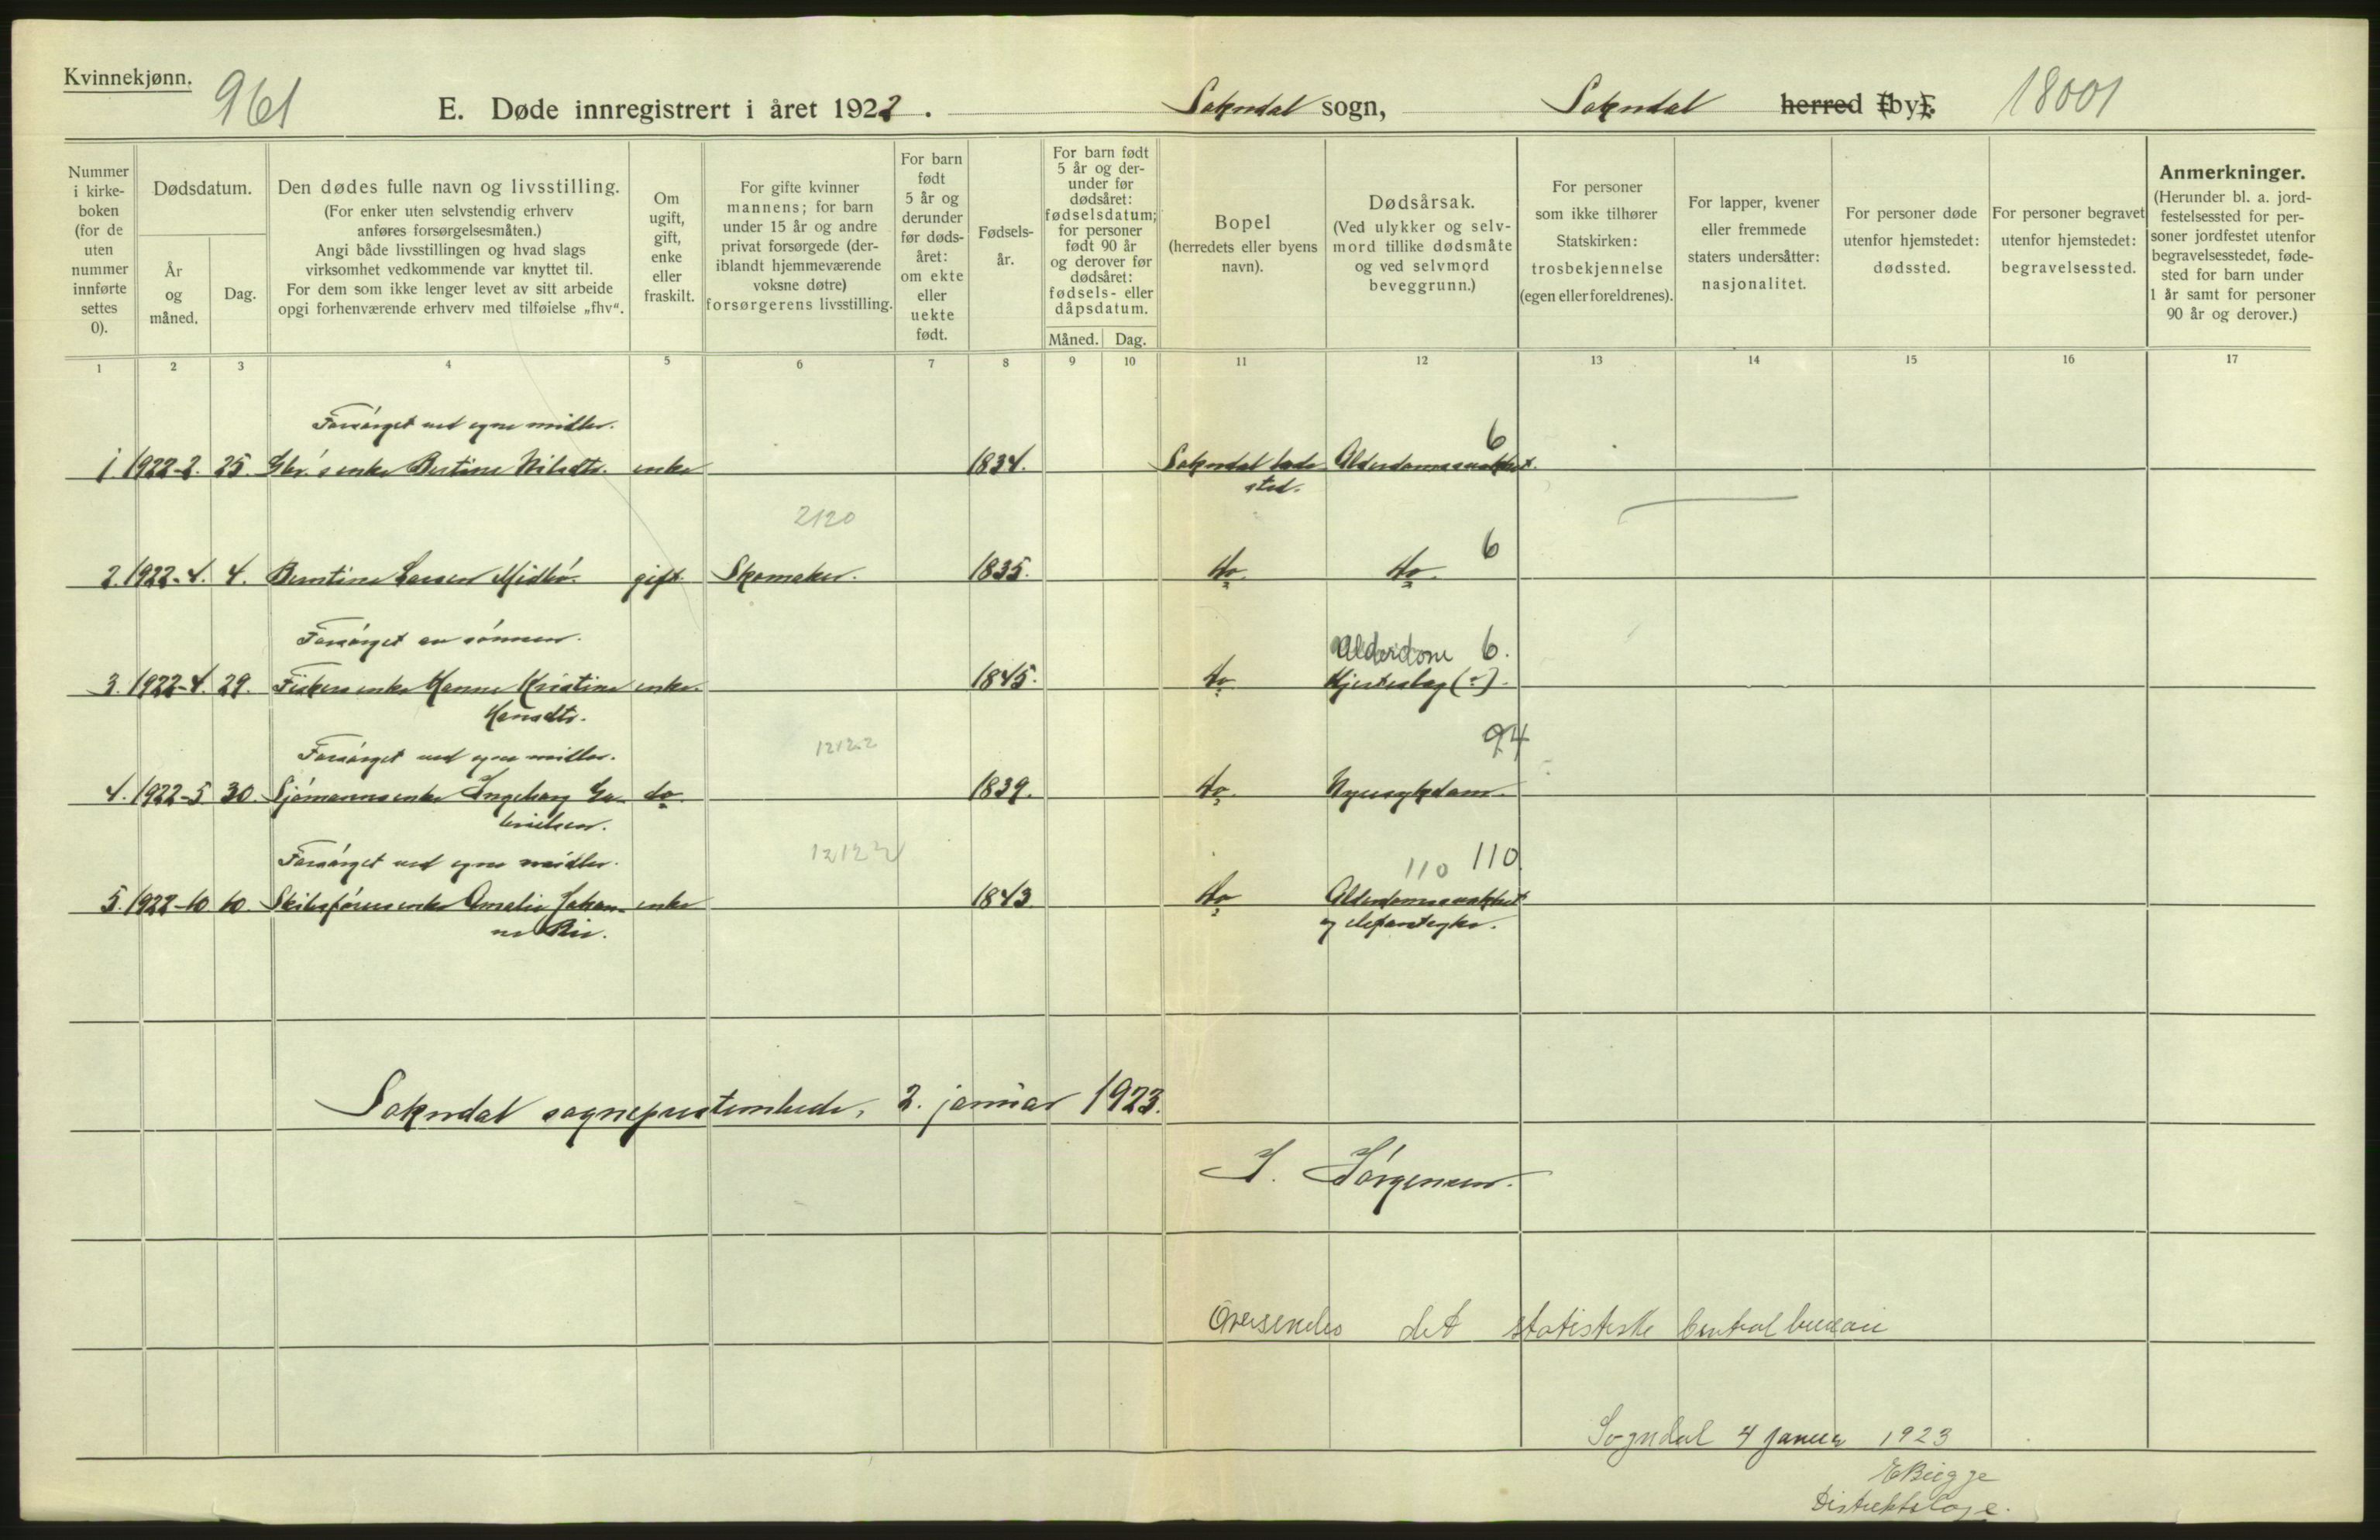 Kvinnekjønn.
961
E. Døde innregistrert i året 1922. Sokndal sogn, Sokndal herred (by). 18001
Nummer i kirke-boken (for de uten nummer innførte settes 0).
Dødsdatum.
År og måned.
Dag.
Den dødes fulle navn og livsstilling.
(For enker uten selvstendig erhverv anføres forsørgelsesmåten.)
Angi både livsstillingen og hvad slags virksomhet vedkommende var knyttet til.
For dem som ikke lenger levet av sitt arbeide opgi forhenværende erhverv med tilføielse „fhv“.
Om ugift, gift, enke eller fraskilt.
For gifte kvinner mannens; for barn under 15 år og andre privat forsørgede (der-iblandt hjemmeværende voksne døtre) forsørgerens livsstilling.
For barn født 5 år og derunder før døds-året: om ekte eller uekte født.
Fødsels-år.
For barn født 5 år og der-under før dødsåret: fødselsdatum; for personer født 90 år og derover før dødsåret: fødsels- eller dåpsdatum.
Måned. Dag.
Bopel (herredets eller byens navn).
Dødsårsak.
(Ved ulykker og selv-mord tillike dødsmåte og ved selvmord beveggrunn.)
For personer som ikke tilhører Statskirken: trosbekjennelse (egen eller foreldrenes).
For lapper, kvener eller fremmede staters undersåtter: nasjonalitet.
For personer døde utenfor hjemstedet: dødssted.
For personer begravet utenfor hjemstedet: begravelsessted.
Anmerkninger.
(Herunder bl. a. jord-festelsessted for per-soner jordfestet utenfor begravelsesstedet, føde-sted for barn under 1 år samt for personer 90 år og derover.)
1 2 3 4 5 6 7 8 9 10 11 12 13 14 15 16 17
Forsørget ved egne midler. 6
1. 1922-2. 25. enke Bertine Nilsdtr. enke 1834. Sokndal lade Alderdomssvakhet.
sted.
2120 6
2. 1922-4. 4. Berntine Larsen Midbø. gift. Skomaker. 1835. do. do.
Forsørget av sønnen. Alderdom 6.
3. 1922-4. 29. Fiskers enke Hanne Kristine enke. 1845. do Hjerteslag (?).
Hansdtr.
Forsørget ved egne midler. 12122 94
4. 1922-5 30. Sjømanns enke Ingeborg Ga- do. 1839. do. Nyresykdom.
brielsen.
Forsørget ved egne midler. 12122 110 110
5. 1922-10 10. Skibsførers enke Amalie Johan- enke 1843. do Alderdomssvakhet
ne og elefantsyke.
Sokndal sogneprestembede, 2. januar 1923.
J. Jørgensen.
Oversendes det statistiske Centralbureau
Sogndal 4 januar 1923
E Bugge
Distriktslæge.